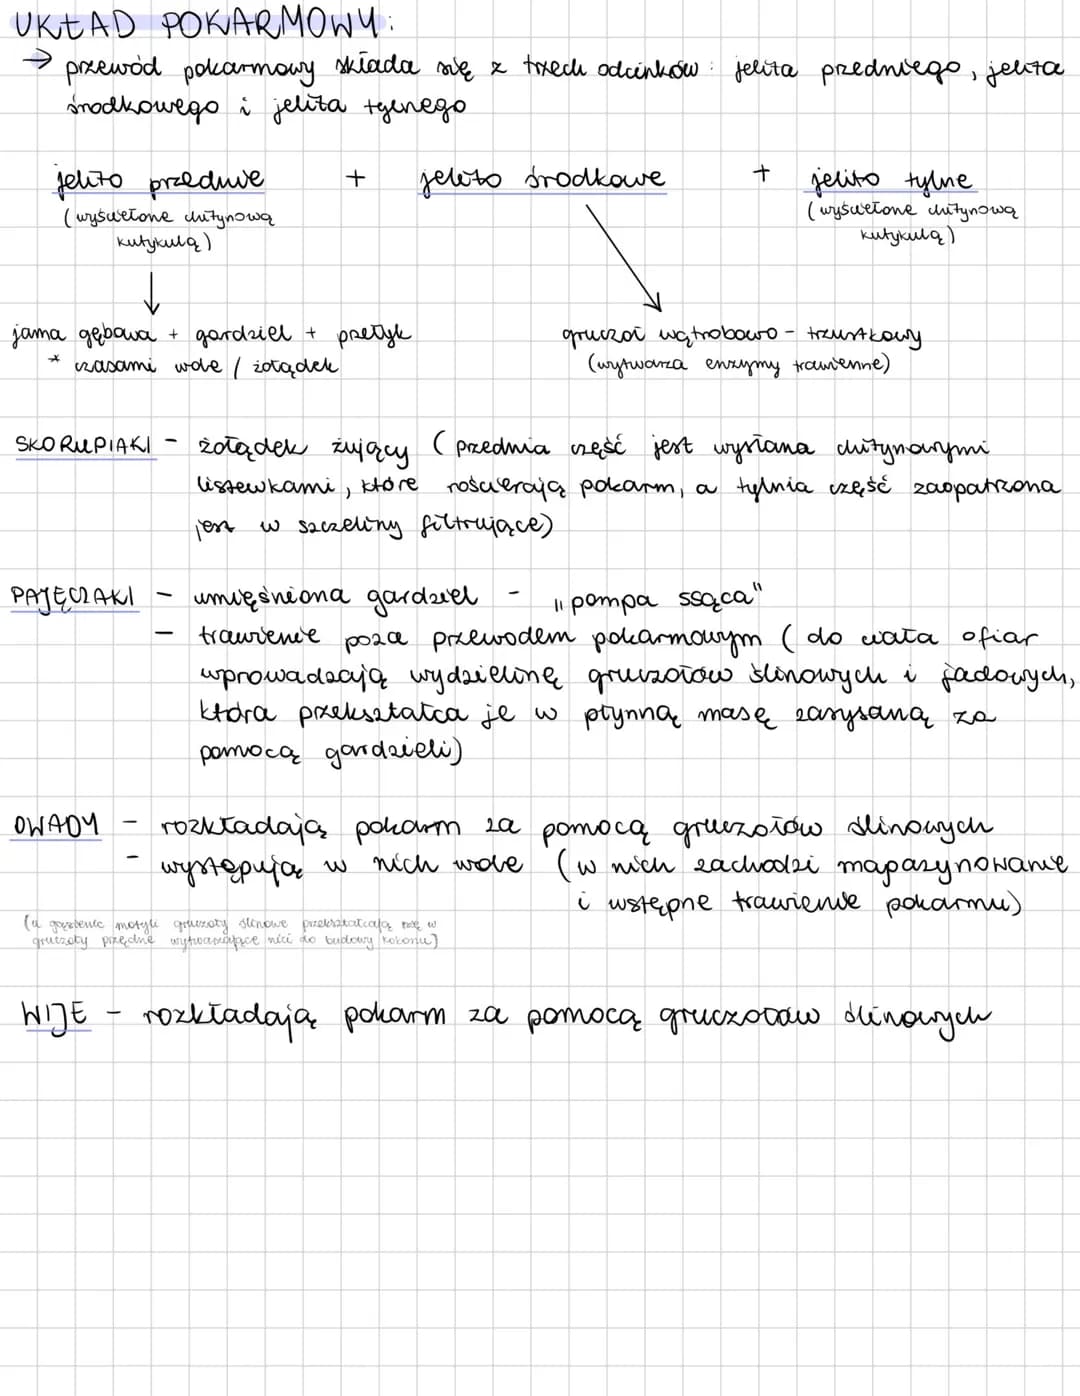 UKŁAD POKARMOWY:
→ przewód pokarmowy składa się z trzech odcinków: jelita przedniego, jelita
środkowego i jelita tylnego
jelito przednie + jelito środkowe + jelito tylne
(wyścielone chitynową (wyścielone chitynową
kutykulą) kutykulą)
jama gębowa + gardziel + przełyk gruczoł wątrobowo - trzustkowy
* czasami wole / żołądek (wytwarza enzymy trawienne)
SKORUPIAKI - żołądek żujący (przednia część jest wysłana chitynowymi
listewkami, które rozcierają pokarm, a tylnia część zaopatrzona
jest w szczeliny filtrujące)
PAJĘCZAKI - umięśniona gardziel - „pompa ssąca"
- trawienie poza przewodem pokarmowym (do ciała ofiar
wprowadzają wydzielinę gruczołów ślinowych i jadowych,
która przekształca je w płynną masę zasysaną za
pomocą gardzieli)
OWADY - rozkładają pokarm za pomocą gruczołów ślinowych
- występują w nich wole (w nich zachodzi magazynowanie
i wstępne trawienie pokarmu)
(u gąsienic motyli gruczoły ślinowe przekształcają się w
gruczoły przędne wytwarzające nici do budowy kokonu)
WIJE - rozkładają pokarm za pomocą gruczołów ślinowych